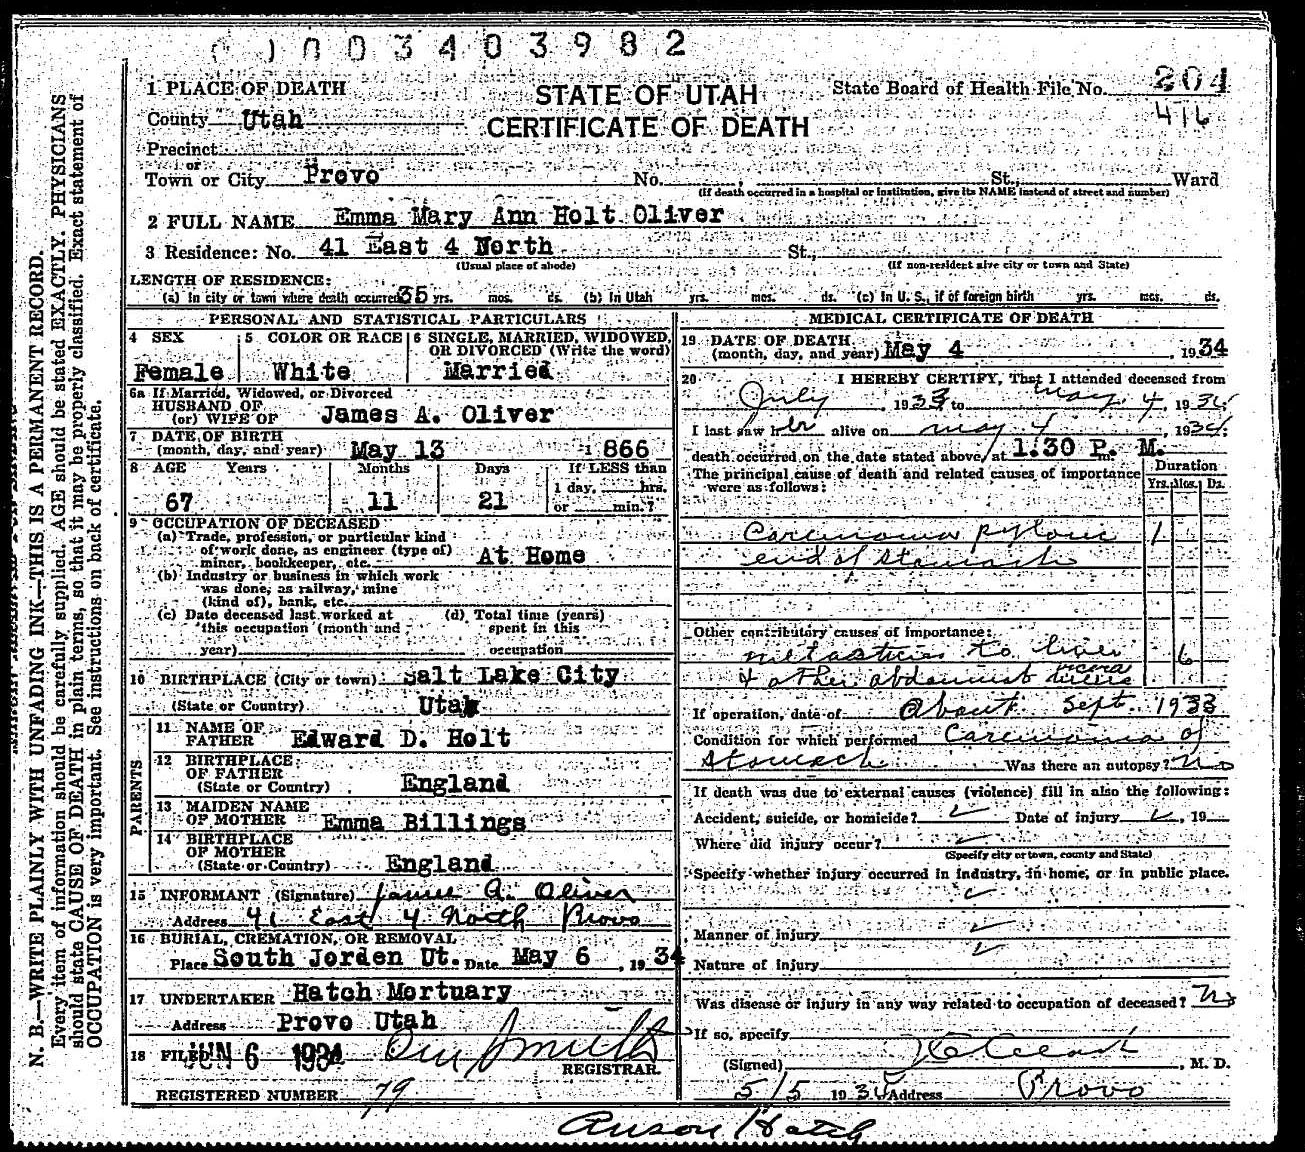 0 0 3 4 0 3 9 8 2
1 PLACE OF DEATH
STATE OF UTAH
CERTIFICATE OF DEATH
State Board of Health File No. 204
416
County Utah
Precinct
or
Town or City Provo No. , St., Ward
(If death occurred in a hospital or institution, give its NAME instead of street and number)
2 FULL NAME Emma Mary Ann Holt Oliver
3 Residence: No. 41 East 4 North St.,
(Usual place of abode) (If non-resident give city or town and State)
LENGTH OF RESIDENCE:
(a) In city or town where death occurred 35 yrs. mos. ds. (b) In Utah yrs. mos. ds. (c) In U. S., if of foreign birth yrs. mos. ds.
PERSONAL AND STATISTICAL PARTICULARS
4 SEX
Female
5 COLOR OR RACE
White
6 SINGLE, MARRIED, WIDOWED,
OR DIVORCED (Write the word)
Married
6a If Married, Widowed, or Divorced
HUSBAND OF
(or) WIFE OF James A. Oliver
7 DATE OF BIRTH
(month, day, and year) May 13 1866
8 AGE Years Months Days If LESS than
1 day, hrs.
or min.?
67 11 21
9 OCCUPATION OF DECEASED
(a) Trade, profession, or particular kind
of work done, as engineer (type of)
miner, bookkeeper, etc. At Home
(b) Industry or business in which work
was done, as railway, mine
(kind of), bank, etc.
(c) Date deceased last worked at
this occupation (month and
year)
(d) Total time (years)
spent in this
occupation
10 BIRTHPLACE (City or town) Salt Lake City
(State or Country) Utah
PARENTS
11 NAME OF
FATHER Edward D. Holt
12 BIRTHPLACE
OF FATHER
(State or Country) England
13 MAIDEN NAME
OF MOTHER Emma Billings
14 BIRTHPLACE
OF MOTHER
(State or Country) England
15 INFORMANT (Signature) James A. Oliver
Address 41 East 4 North Provo
16 BURIAL, CREMATION, OR REMOVAL
Place South Jorden Ut. Date May 6, 1934
17 UNDERTAKER Hatch Mortuary
Address Provo Utah
18 FILED JUN 6 1934
REGISTRAR.
REGISTERED NUMBER 79
MEDICAL CERTIFICATE OF DEATH
19 DATE OF DEATH
(month, day, and year) May 4, 1934
20 I HEREBY CERTIFY, That I attended deceased from
July, 1933 to May 4, 1934
I last saw her alive on May 4, 1934;
death occurred on the date stated above, at 1:30 P. M.
The principal cause of death and related causes of importance
were as follows:
Duration
Yrs. Mos. Ds.
Carcinoma pyloric 1
end of stomach
Other contributory causes of importance:
metastices to liver 6
& other abdominal vicera
If operation, date of About Sept. 1933
Condition for which performed Carcinoma of
Stomach Was there an autopsy? No
If death was due to external causes (violence) fill in also the following:
Accident, suicide, or homicide? Date of injury , 19
Where did injury occur?
(Specify city or town, county and State)
Specify whether injury occurred in industry, in home, or in public place.
Manner of injury
Nature of injury
Was disease or injury in any way related to occupation of deceased? No
If so, specify
(Signed) , M. D.
5/5 1934 Address Provo
Anson Hatch
N. B.—WRITE PLAINLY WITH UNFADING INK—THIS IS A PERMANENT RECORD.
Every item of information should be carefully supplied. AGE should be stated EXACTLY. PHYSICIANS
should state CAUSE OF DEATH in plain terms, so that it may be properly classified. Exact statement of
OCCUPATION is very important. See instructions on back of certificate.